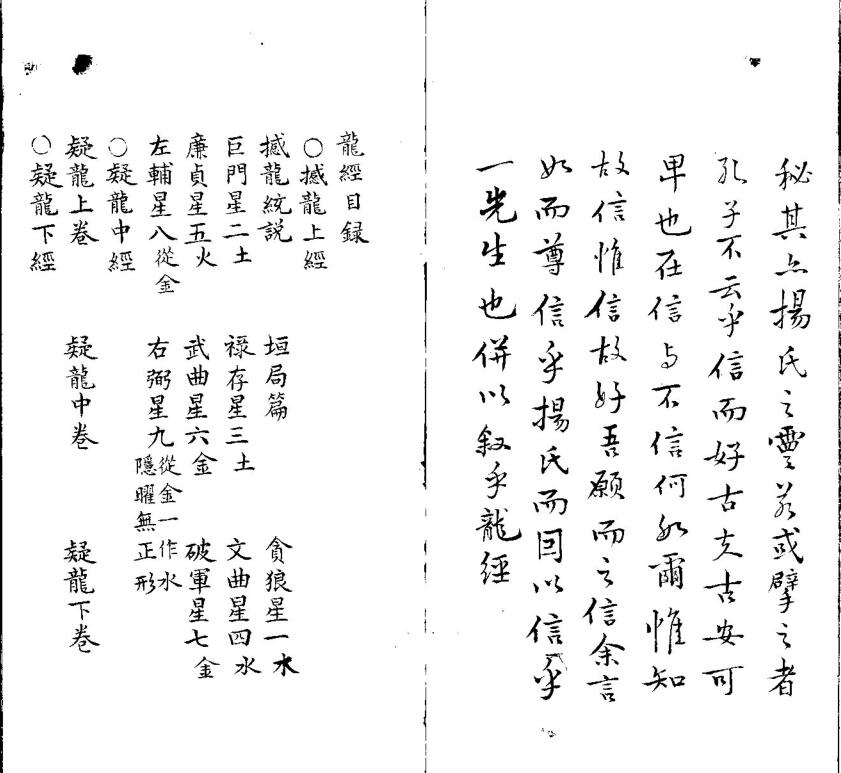 秘其亦揚氏之靈若或擘之者
孔子不云乎信而好古夫古安可
卑也在信与不信何如爾惟知
故信惟信故好吾願而之信余言
如而尊信乎揚氏而因以信乎
一先生也併以叙乎龍經
龍經目録
○撼龍上經
撼龍統説 垣局篇 貪狼星一水
巨門星二土 祿存星三土 文曲星四水
廉貞星五火 武曲星六金 破軍星七金
左輔星八從金 右弼星九從金一作水隱曜無正形
○疑龍中經
疑龍上卷 疑龍中卷 疑龍下卷
○疑龍下經